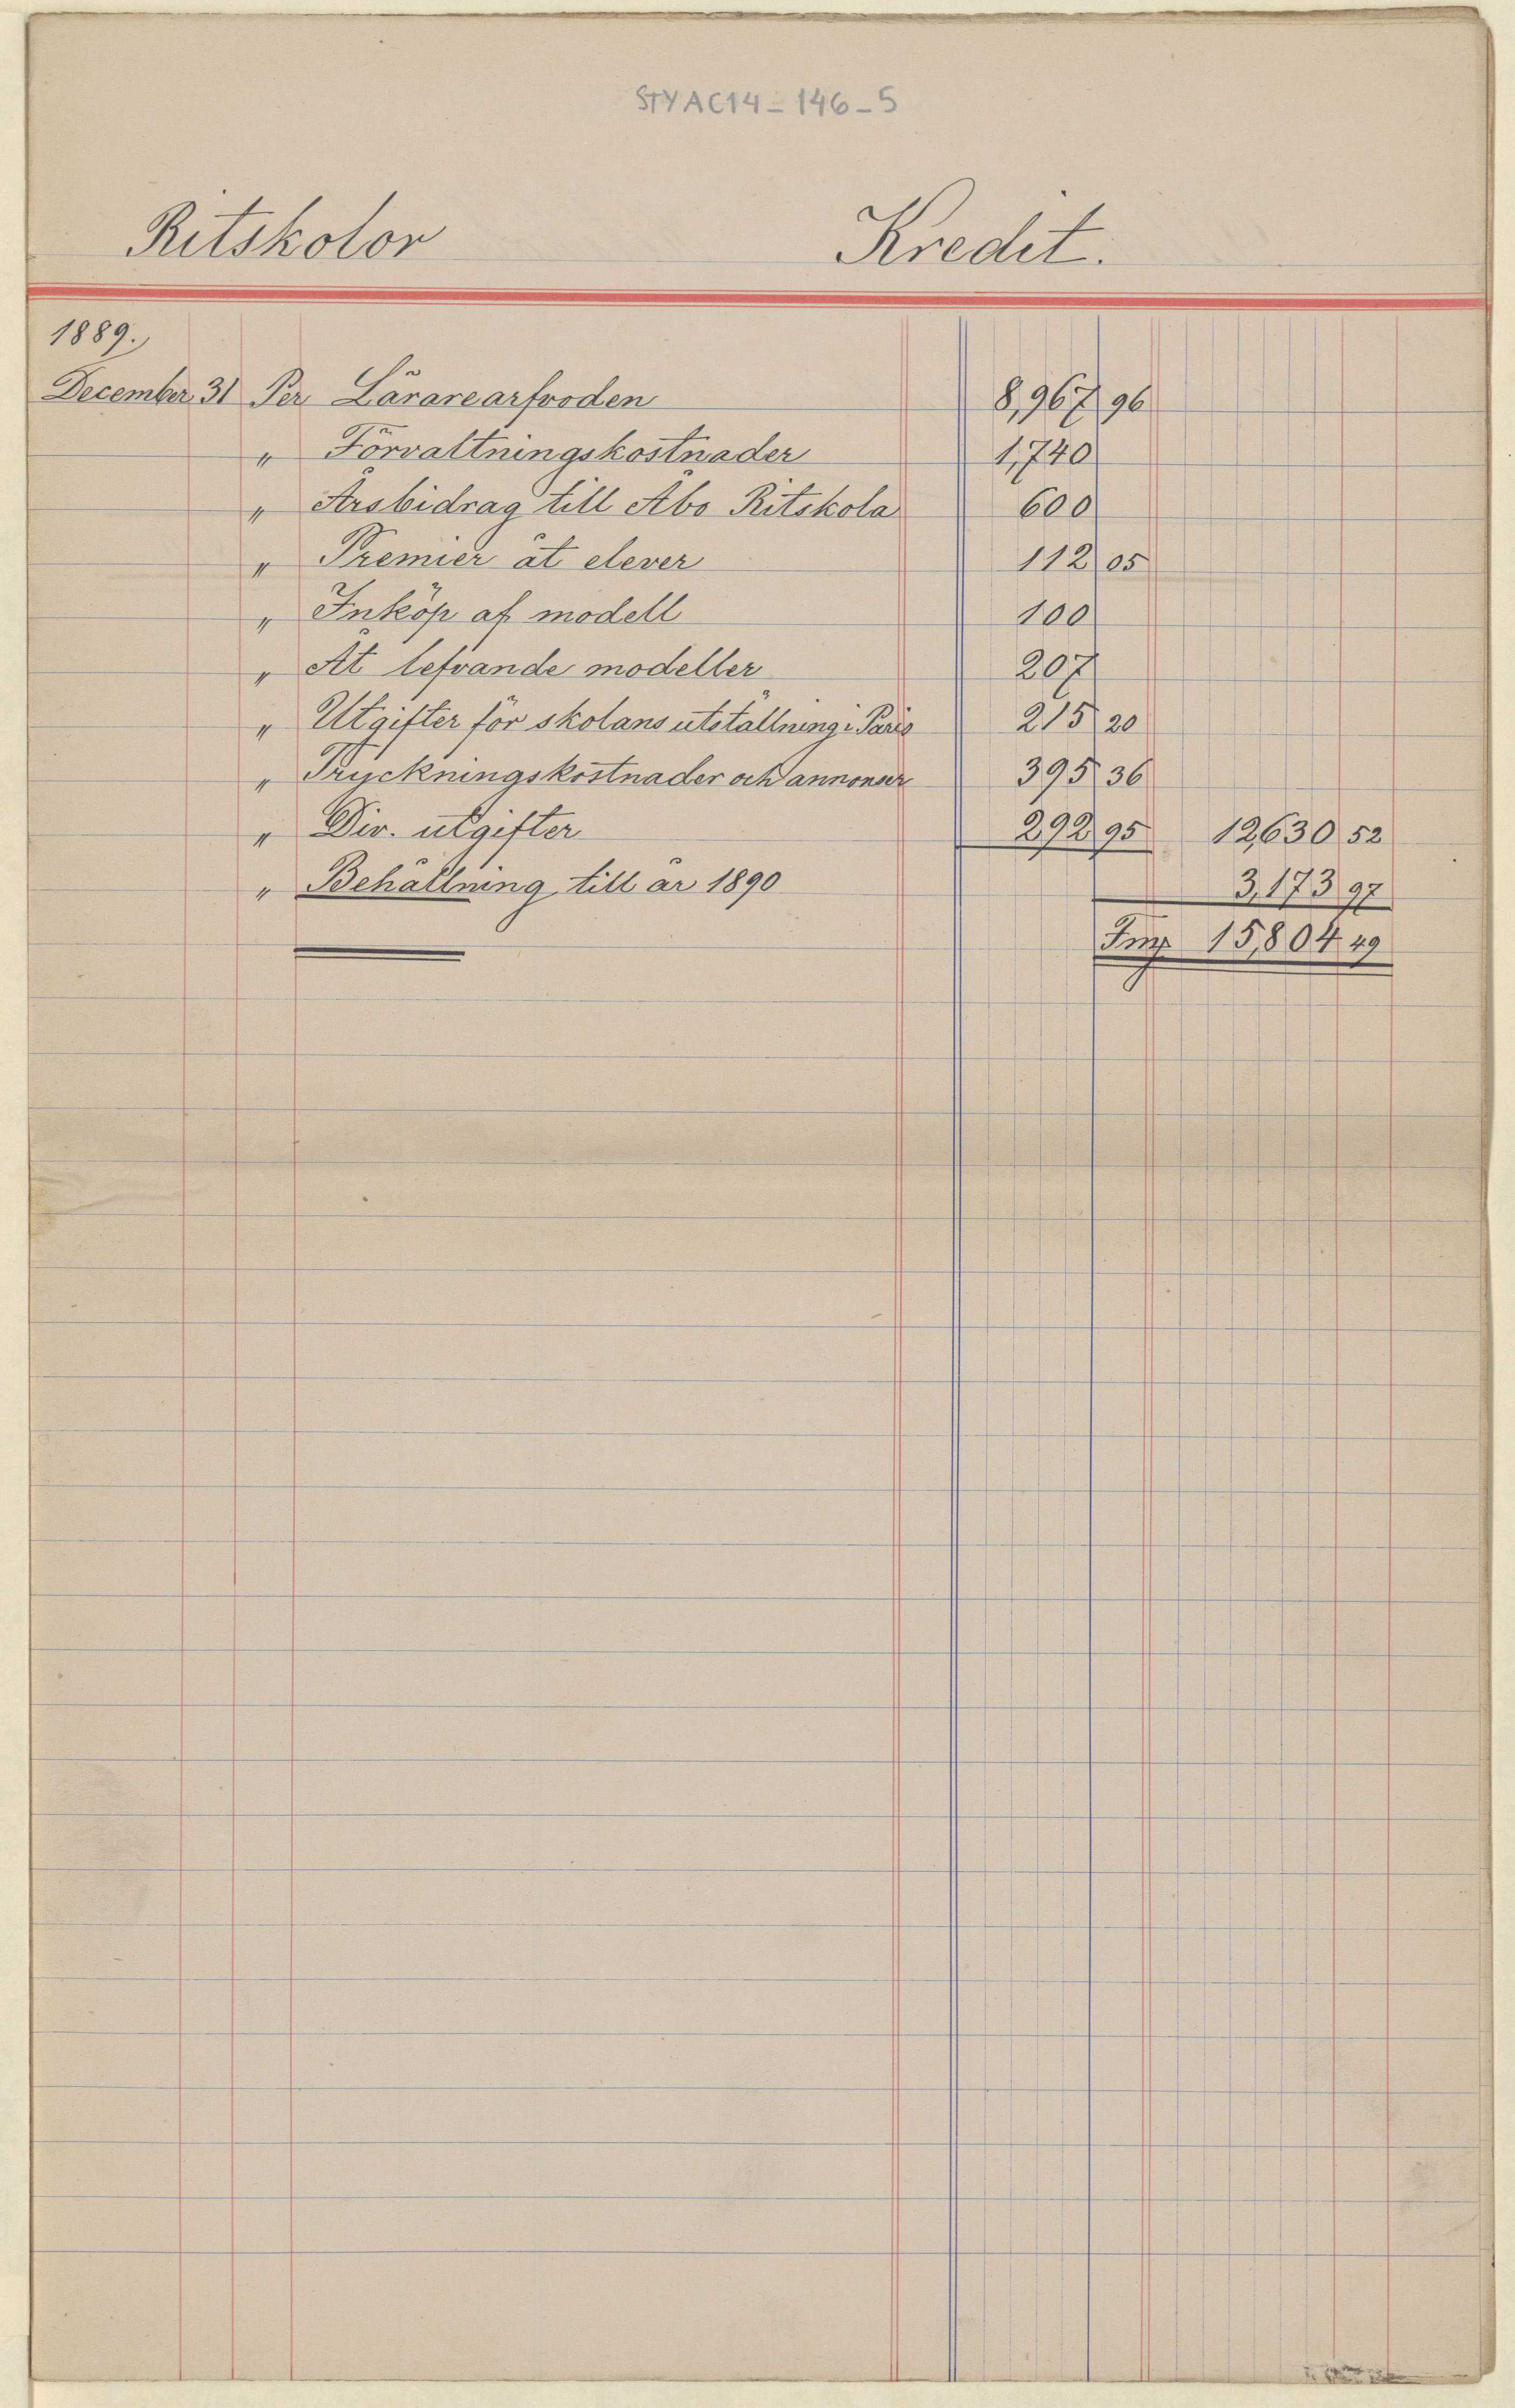 STYAC14-146-5
Ritskolor Kredit.
1889.
December 31 Per Lärarearfvoden 8,967 96
" Förvaltningskostnader 1,740
" Årsbidrag till Åbo Ritskola 600
" Premier åt elever 112 05
" Inköp af modell 100
" Åt lefvande modeller 207
" Utgifter för skolans utställning i Paris 215 20
" Tryckningskostnader och annonser 395 36
" Div. utgifter 292 95 12,630 52
" Behållning till år 1890 3,173 97
Fmy 15,804 49